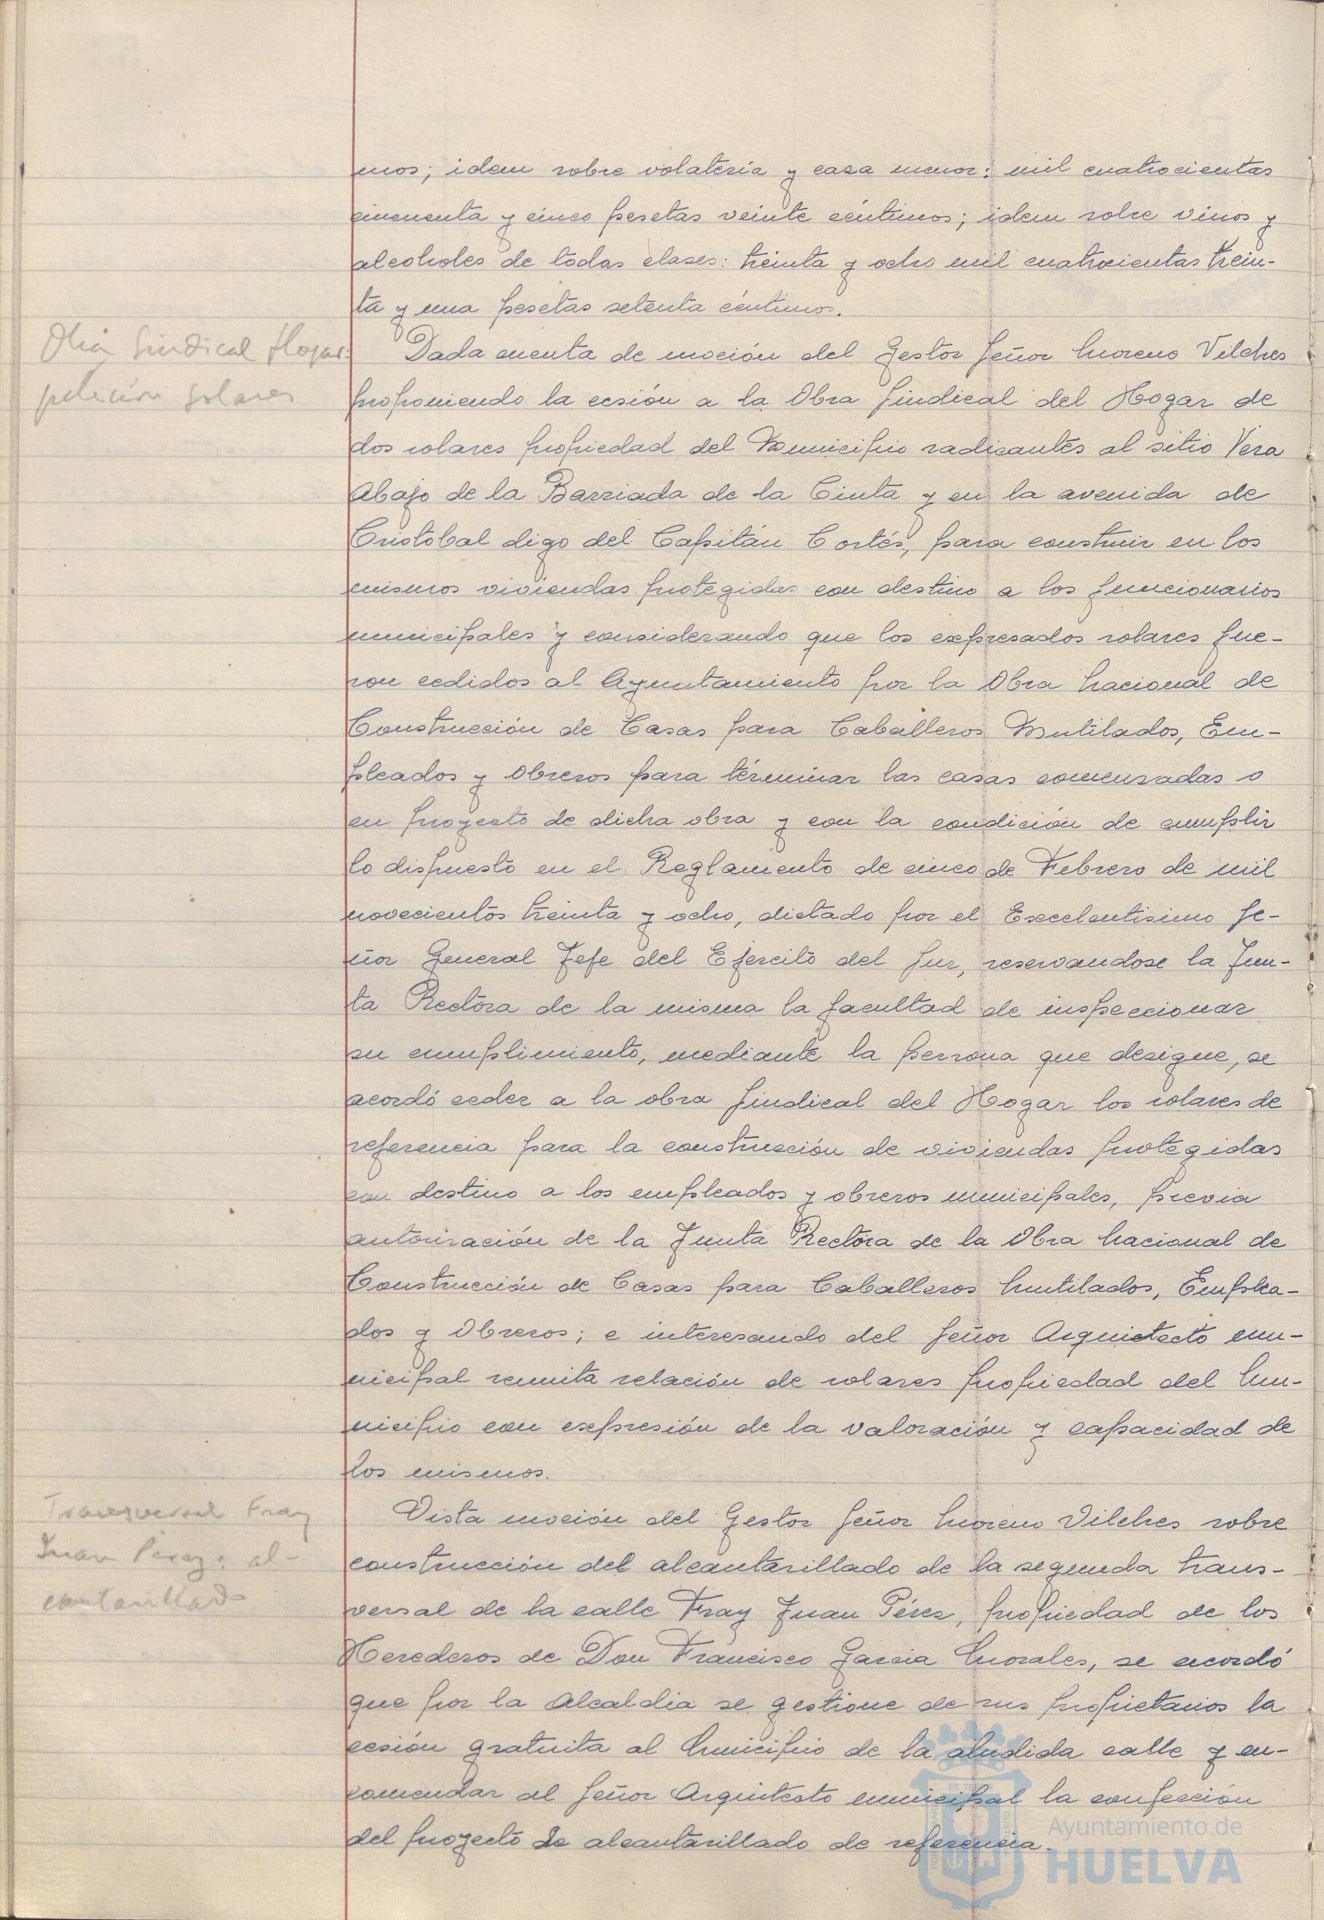 mos; idem sobre volatería y caza menor: mil cuatrocientas
cincuenta y cinco pesetas veinte céntimos; idem sobre vinos y
alcoholes de todas clases: treinta y ocho mil cuatrocientas trein-
ta y una pesetas setenta céntimos.
Obra Sindical Hogar:
petición solares
Dada cuenta de moción del Gestor Señor Moreno Vilches
proponiendo la cesión a la Obra Sindical del Hogar de
dos solares propiedad del Municipio radicantes al sitio Vera
Abajo de la Barriada de la Cinta y en la avenida de
Cristobal digo del Capitán Cortés, para construir en los
mismos viviendas protegidas con destino a los funcionarios
municipales y considerando que los expresados solares fue-
ron cedidos al Ayuntamiento por la Obra Nacional de
Construcción de Casas para Caballeros Mutilados, Em-
pleados y Obreros para términar las casas comenzadas o
en proyecto de dicha obra y con la condición de cumplir
lo dispuesto en el Reglamento de cinco de Febrero de mil
novecientos treinta y ocho, dictado por el Excelentisimo Se-
ñor General Jefe del Ejercito del Sur, reservandose la Jun-
ta Rectora de la misma la facultad de inspeccionar
su cumplimiento, mediante la persona que designe, se
acordó ceder a la obra Sindical del Hogar los solares de
referencia para la construcción de viviendas protegidas
con destino a los empleados y obreros municipales, previa
autorización de la Junta Rectora de la Obra Nacional de
Construcción de Casas para Caballeros Mutilados, Emplea-
dos y Obreros; e interesando del Señor Arquietecto mu-
nicipal remita relación de solares propiedad del Mu-
nicipio con expresión de la valoración y capacidad de
los mismos.
Transversal Fray
Juan Pérez: al-
cantarillado
Vista moción del Gestor Señor Moreno Vilches sobre
construcción del alcantarillado de la segunda trans-
versal de la calle Fray Juan Pérez, propiedad de los
Herederos de Don Francisco Garcia Morales, se acordó
que por la Alcaldia se gestione de sus propietarios la
cesión gratuita al Municipio de la aludida calle y en-
comendar al Señor Arquitecto municipal la confección
del proyecto de alcantarillado de referencia.
Ayuntamiento de
HUELVA